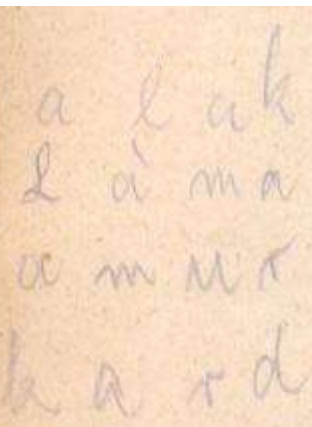 a l a k
L á m a
a m u r
k a r d